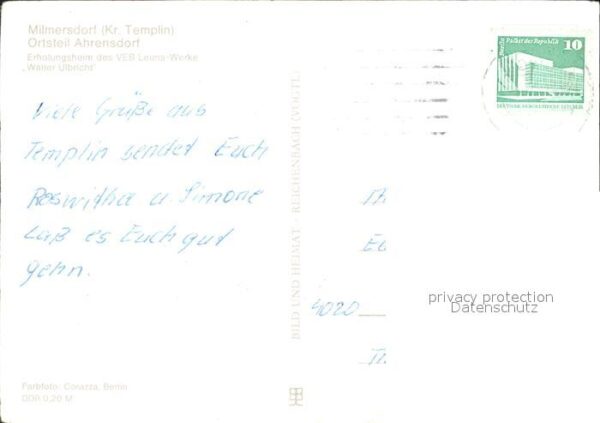 Milmersdorf (Kr. Templin)
Ortsteil Ahrensdorf
Erholungsheim des VEB Leuna-Werke
„Walter Ulbricht"
Viele Grüße aus
Templin sendet Euch
Roswitha u. Simone
Laß es Euch gut
gehn.
Farbfoto: Corazza, Berlin
DDR 0,20 M
BILD UND HEIMAT · REICHENBACH (VOGTL)
Berlin Palast der Republik
10
DEUTSCHE DEMOKRATISCHE REPUBLIK
4020
privacy protection
Datenschutz